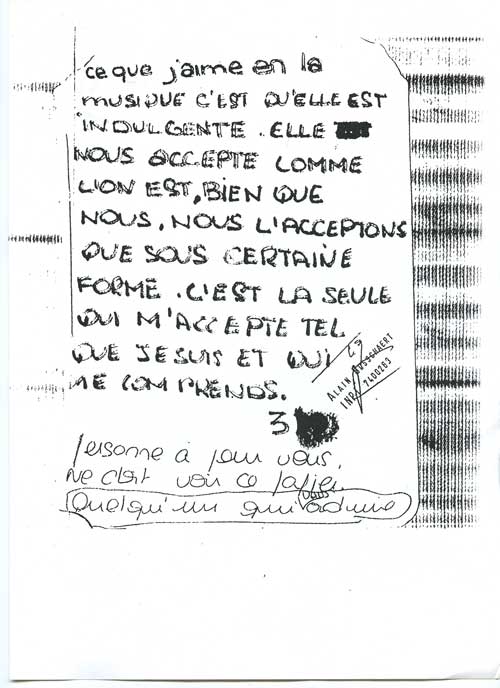 ce que j'aime en la
MUSIQUE C'EST QU'ELLE EST
INDULGENTE. ELLE
NOUS ACCEPTE COMME
L'ON EST, BIEN QUE
NOUS, NOUS L'ACCEPTIONS
QUE SOUS CERTAINE
FORME. C'EST LA SEULE
QUI M'ACCEPTE TEL
QUE JE SUIS ET QUI
ME COMPRENDS.
3
ALAIN
7400203
Personne à part vous.
ne doit voir ce papier
Quelqu'un qui vous admire